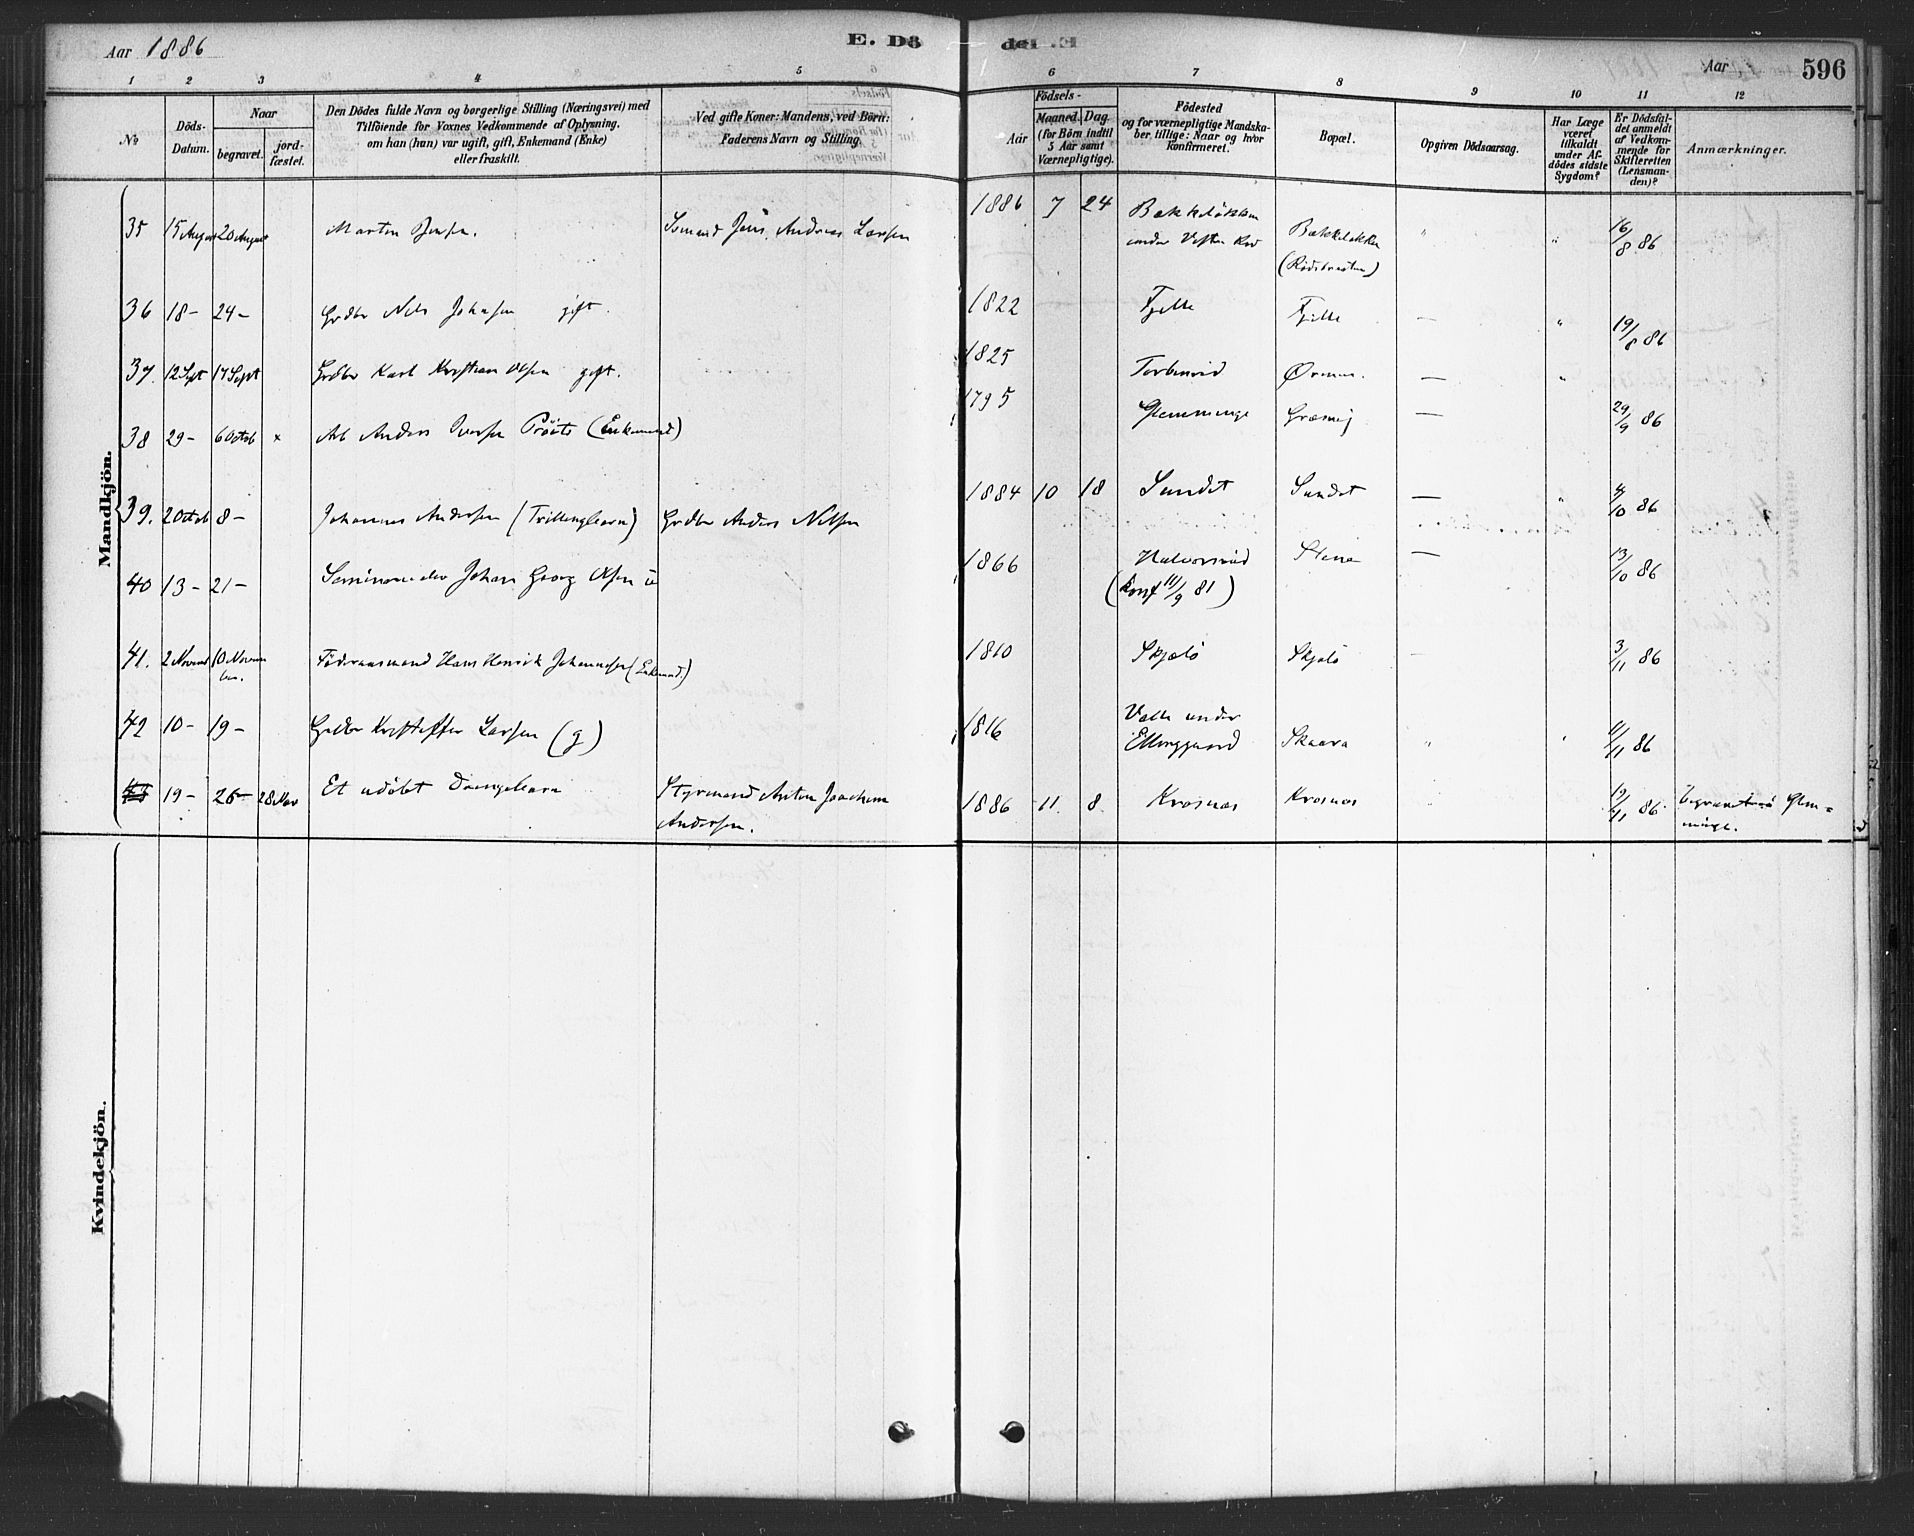 Aar 1886
E. Dö
Aar
596
1 2 3 4 5 6 7 8 9 10 11 12
No
Döds-Datum.
Naar
begravet.
jord-fæstet.
Den Dödes fulde Navn og borgerlige Stilling (Næringsvei) med
Tilföiende for Voxnes Vedkommende af Oplysning,
om han (hun) var ugift, gift, Enkemand (Enke)
eller fraskilt.
Ved gifte Koner: Mandens, ved Börn:
Faderens Navn og Stilling.
Födsels-
Aar
Maaned. Dag.
(for Börn indtil
5 Aar samt
Værnepligtige).
Födested
og for værnepligtige Mandska-
ber tillige: Naar og hvor
konfirmeret.
Bopæl.
Opgiven Dödsaarsag.
Har Læge
været
tilkaldt
under Af-
dödes sidste
Sygdom?
Er Dödsfal-
det anmeldt
af Vedkom-
mende for
Skifteretten
(Lensman-
den)?
Anmærkninger.
Mandkjön.
35 15 August 20 August Martin Jensen. Sömand Jens Andreas Larsen 1886 7 24 Bakkeløkken under Vestre Bakkeløkken " " 16/8 86
36 18 - 24 - Grdbr Nils Johnsen gift. 1822 Fjelle Fjelle — " 19/8 86
37. 12 Sept 17 Sept Grdbr Karl Kristian Olsen gift. 1825 Torbørnrød — "
38 29 - 6 Octob x Anders Iversen (Enkemand) 1795 Glemminge — 29/9 86
39. 2 Octob 8 - Johannes Andersen (Trillingbarn) Grdbr Anders Nilsen 1884 10 18 Sundet Sundet — " 4/10 86
40 13 - 21 - Johan Georg Olsen u 1866 Halvorsrød (Konf 11/9 81) Stene — 13/10 86
41. 2 Novemb 10 November Föderaadsmand Hans Henrik Johannesen (Enkemand.) 1810 Skjælø Skjælø 3/11 86
42 10 - 19 - Grdbr Kristoffer Larsen (g) 1816 Valle under Elinggaard Skaara " " 11/11 86
19 - 26 - 28 Nov Et udøbt Drengebarn Styrmand Anton Joachim Andersen. 1886 11. 8. Krosnes Krosnes " 19/11 86 Begravet på Glemminge.
Kvindekjön.